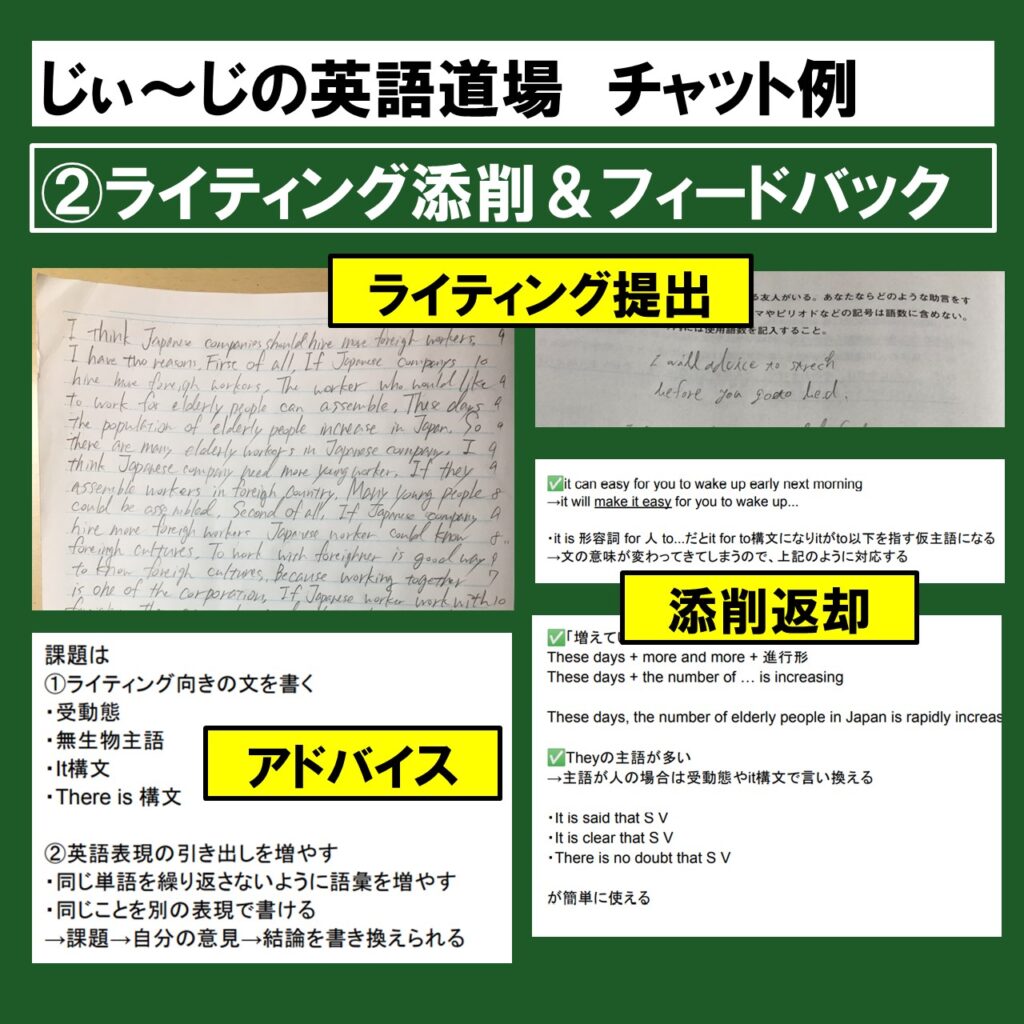 じぃ～じの英語道場　チャット例
②ライティング添削＆フィードバック
ライティング提出
I think Japanese companies should hire more foreigh workers. 9
I have two reasons. First of all, If Japanese companys 10
hire more foreigh workers. The worker who would like 9
to work for elderly people can assemble. These days 9
the population of elderly people increase in Japan. So 9
there are many elderly workers in Japanese company. I 9
think Japanese company need more young worker. If they 9
assemble workers in foreigh country, Many young people 8
could be assembled. Second of all, If Japanese company 9
hire more foreigh workers Japanese worker could know 8
foreingh cultures. To work with foreigher is good way 9
to know foreigh cultures. Because working together 7
is one of the corporation. If Japanese worker work with 10
る友人がいる。あなたならどのような助言をす
マやピリオドなどの記号は語数に含めない。
には使用語数を記入すること。
I will advice to strech
before you go to bed.
✅it can easy for you to wake up early next morning
→it will make it easy for you to wake up...
・it is 形容詞 for 人 to...だとit for to構文になりitがto以下を指す仮主語になる
→文の意味が変わってきてしまうので、上記のように対応する
添削返却
✅「増えて
These days + more and more + 進行形
These days + the number of … is increasing
These days, the number of elderly people in Japan is rapidly increas
✅Theyの主語が多い
→主語が人の場合は受動態やit構文で言い換える
・It is said that S V
・It is clear that S V
・There is no doubt that S V
が簡単に使える
課題は
①ライティング向きの文を書く
・受動態
・無生物主語
・It構文
・There is 構文
アドバイス
②英語表現の引き出しを増やす
・同じ単語を繰り返さないように語彙を増やす
・同じことを別の表現で書ける
→課題→自分の意見→結論を書き換えられる